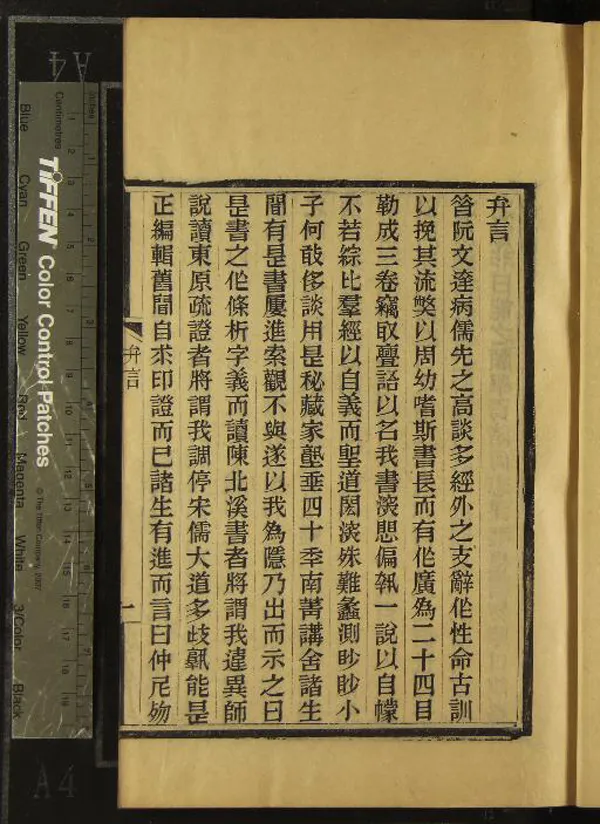 弁言
昝阮文達病儒先之高談多經外之支辭作性命古訓
以挽其流獘以周幼嗜斯書長而有作廣為二十四目
勒成三卷竊取亹語以名我書深思偏執一說以自幪
不若綜比羣經以自義而聖道閎深殊難蠡測眇眇小
子何敢侈談用是秘藏家塾垂四十季南菁講舍諸生
閒有是書屢進索觀不與遂以我為隱乃出而示之曰
是書之作條析字義而讀陳北溪書者將謂我違異師
說讀東原疏證者將謂我調停宋儒大道多歧孰能是
正編輯舊聞自求印證而已諸生有進而言曰仲尼歾
弁言
一
A4
A4
Centimetres
Inches
TIFFEN Color Control Patches
© The Tiffen Company, 2007
Blue
Cyan
Green
Yellow
Red
Magenta
White
3/Color
Black